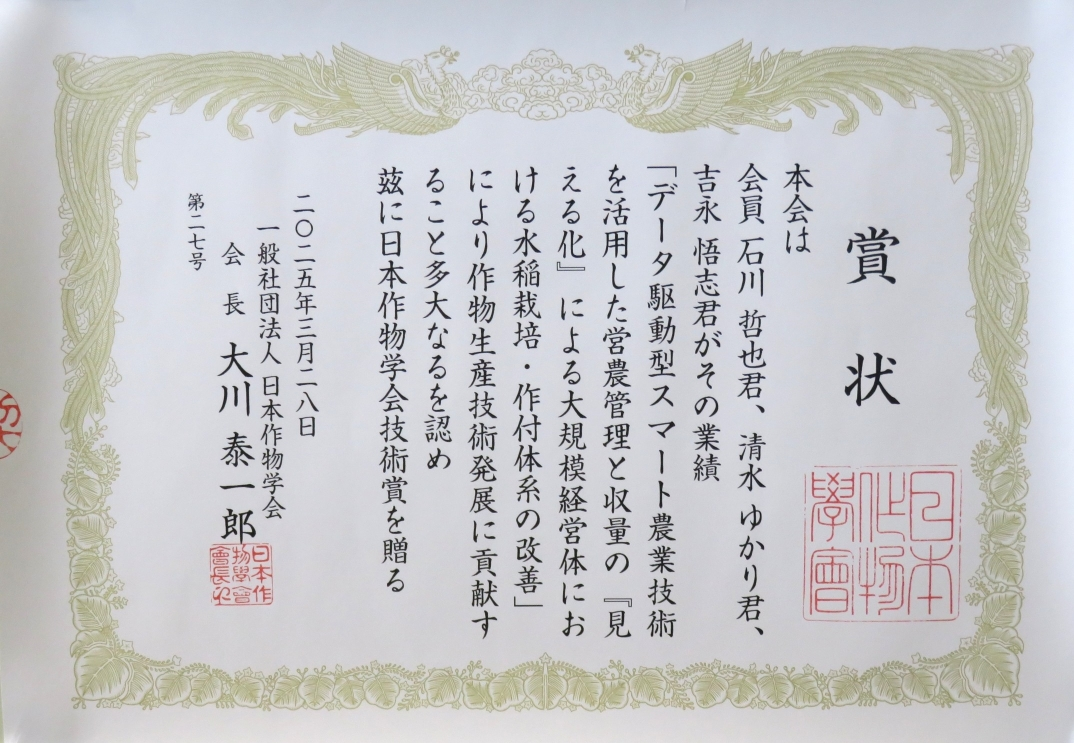 賞状
本会は
会員 石川 哲也君、清水 ゆかり君、
吉永 悟志君がその業績
「データ駆動型スマート農業技術
を活用した営農管理と収量の『見
える化』による大規模経営体にお
ける水稲栽培・作付体系の改善」
により作物生産技術発展に貢献す
ること多大なるを認め
茲に日本作物学会技術賞を贈る
二〇二五年三月二八日
一般社団法人 日本作物学会
会長 大川 泰一郎
第二七号
日本
作物
學會
日本作
物學會
會長印